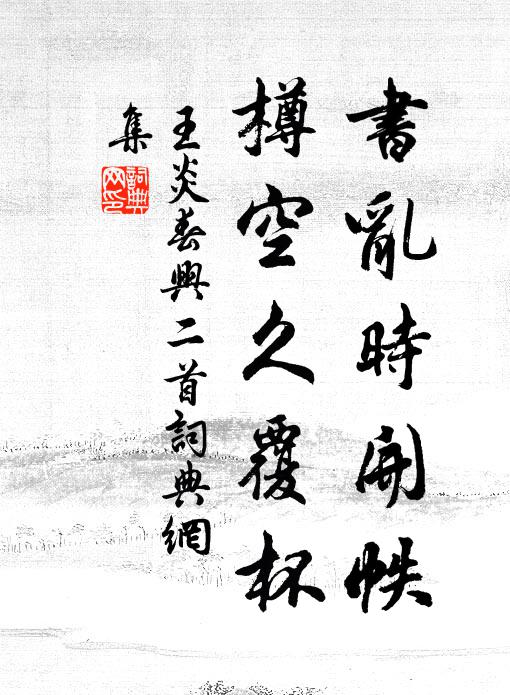 書亂時開帙
樽空久覆杯
王炎春興二首詞典網
集
詞典網印